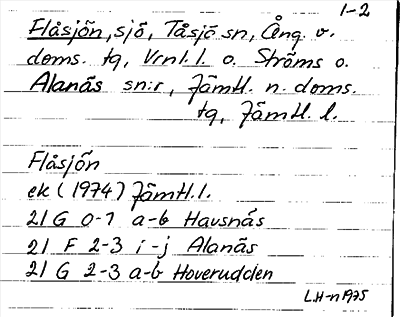 1-2
Flåsjön, sjö, Tåsjö sn, Ång. v.
doms. tg, Vrnl. l. o. Ströms o.
Alanäs sn:r, Jämtl. n. doms.
tg, Jämtl. l.
Flåsjön
ek (1974) Jämtl. l.
21 G 0-1 a-b Havsnäs
21 F 2-3 i-j Alanäs
21 G 2-3 a-b Hoverudden
LH-n 1975